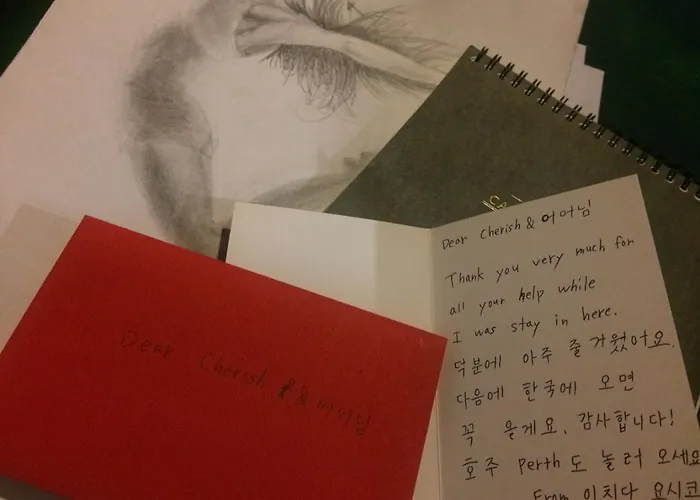 Dear Cherish & 어머님
Dear Cherish & 어머님
Thank you very much for
all your help while
I was stay in here.
덕분에 아주 즐거웠어요.
다음에 한국에 오면
꼭 올게요. 감사합니다!
호주 Perth도 놀러 오세요
From 이치다 요시코